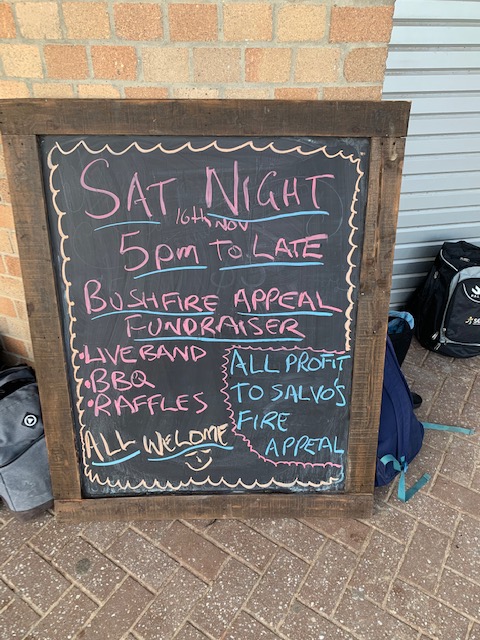 SAT NIGHT
16th NOV
5pm TO LATE
BUSHFIRE APPEAL
FUNDRAISER
•LIVE BAND
•BBQ
•RAFFLES
ALL WELOME
ALL PROFIT
TO SALVO'S
FIRE
APPEAL